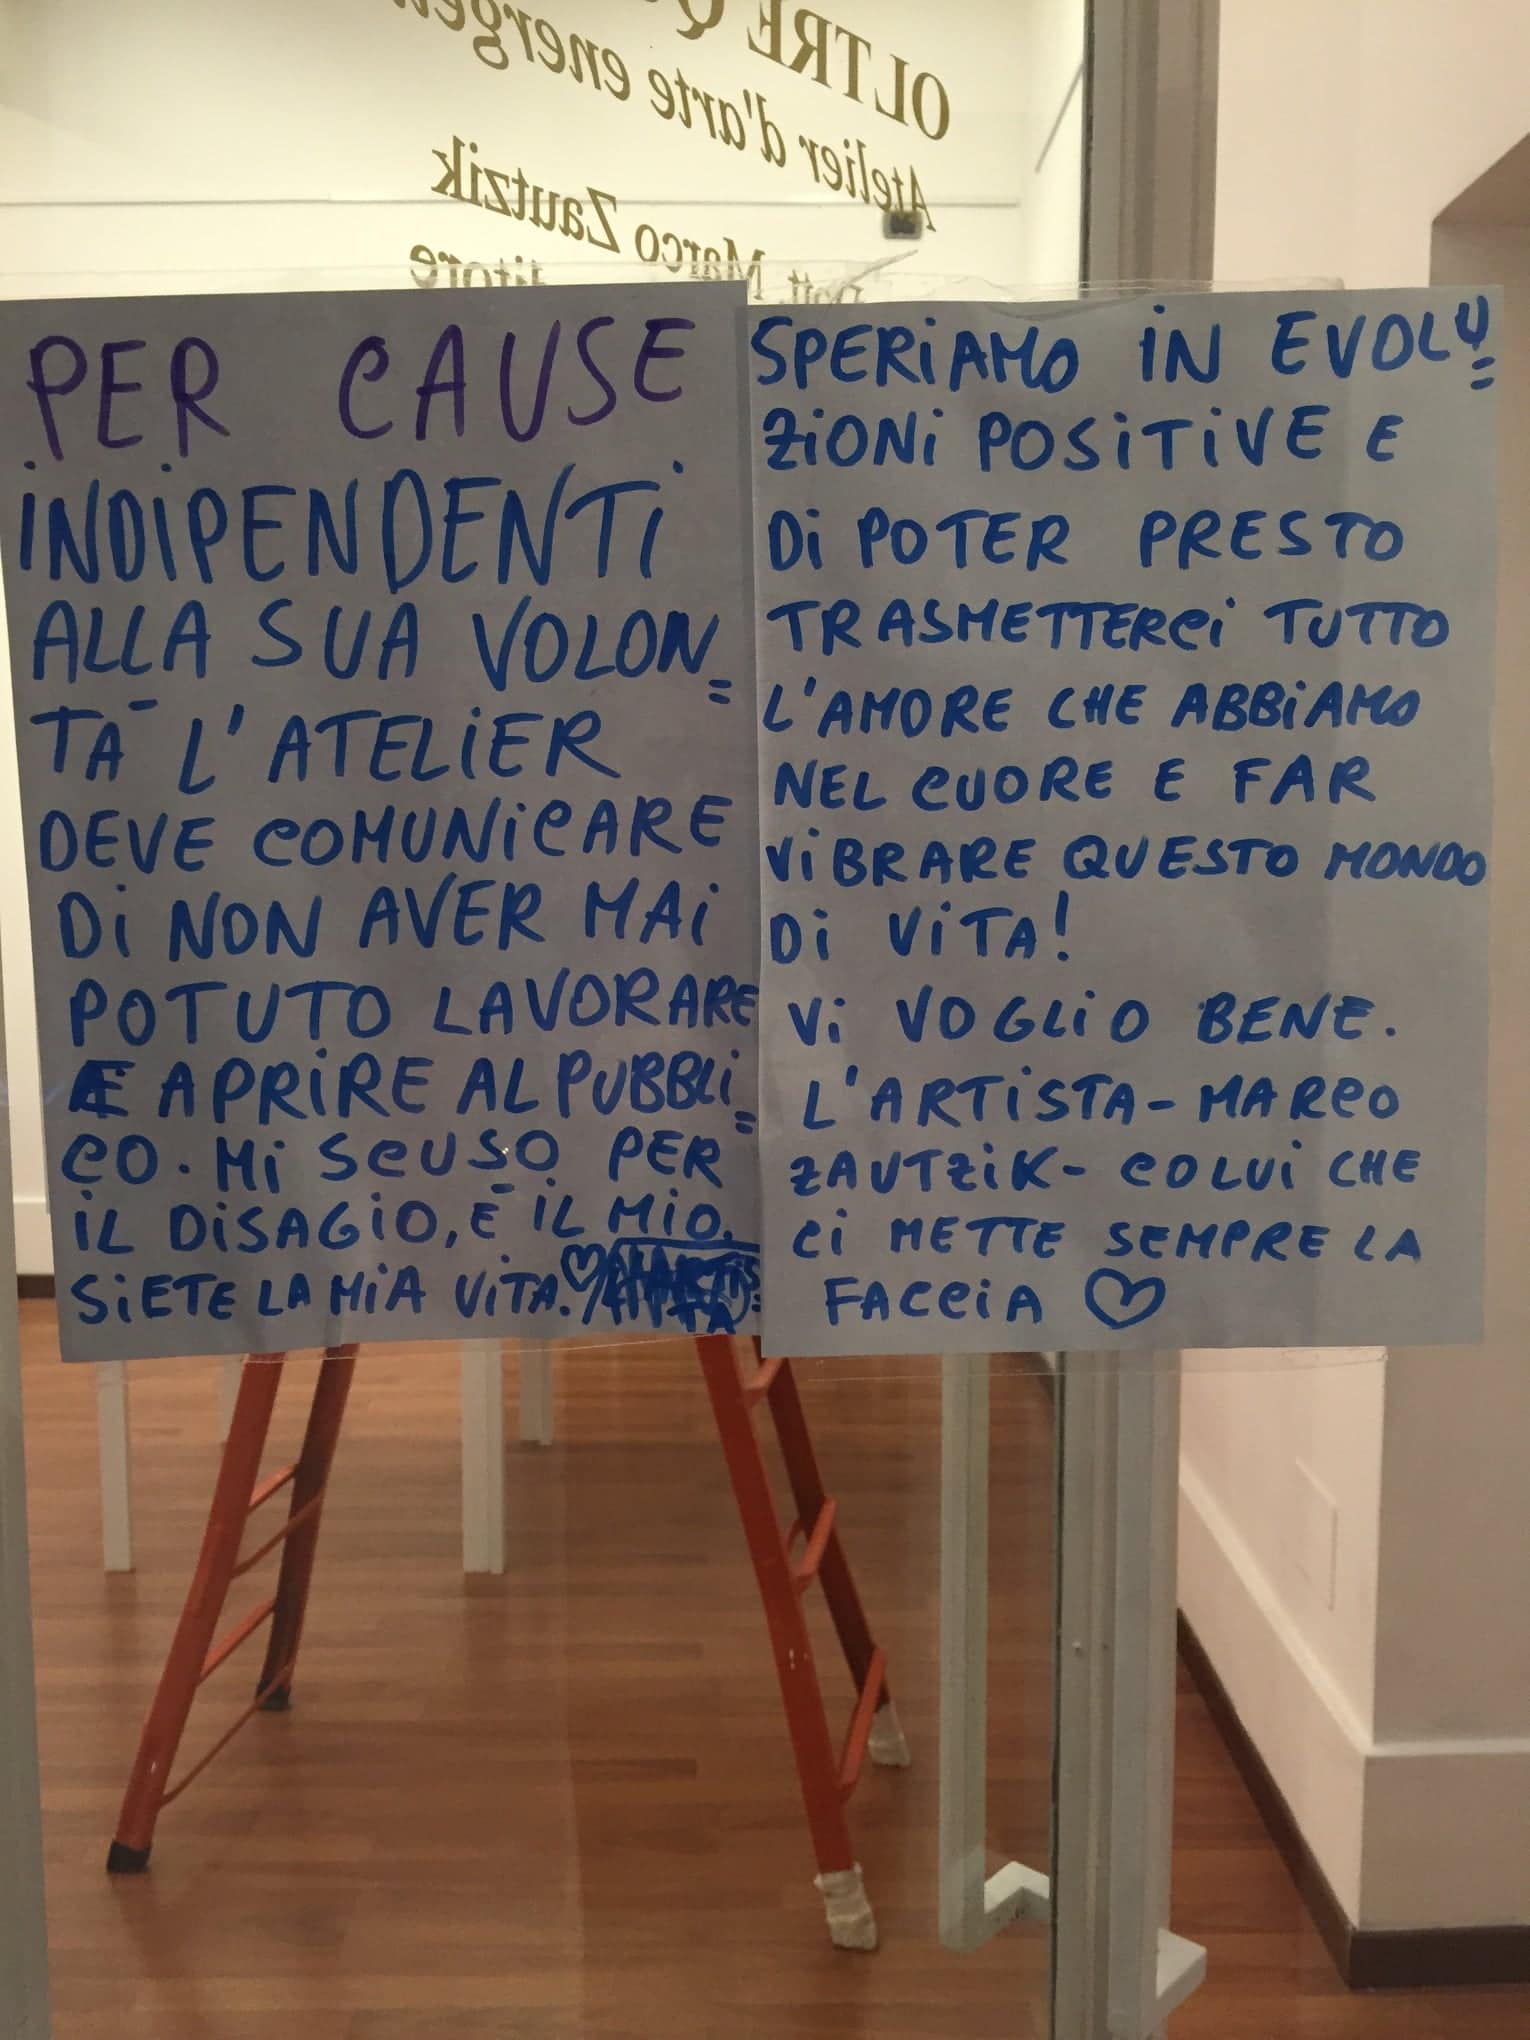 OLTRE
Atelier d'arte
Marco Zautzik
PER CAUSE
INDIPENDENTI
ALLA SUA VOLON=
TÀ L'ATELIER
DEVE COMUNICARE
DI NON AVER MAI
POTUTO LAVORARE
E APRIRE AL PUBBLI=
CO. MI SCUSO PER
IL DISAGIO, È IL MIO.
SIETE LA MIA VITA. ♡
SPERIAMO IN EVOLU=
ZIONI POSITIVE E
DI POTER PRESTO
TRASMETTERCI TUTTO
L'AMORE CHE ABBIAMO
NEL CUORE E FAR
VIBRARE QUESTO MONDO
DI VITA!
VI VOGLIO BENE.
L'ARTISTA - MARCO
ZAUTZIK - COLUI CHE
CI METTE SEMPRE LA
FACCIA ♡